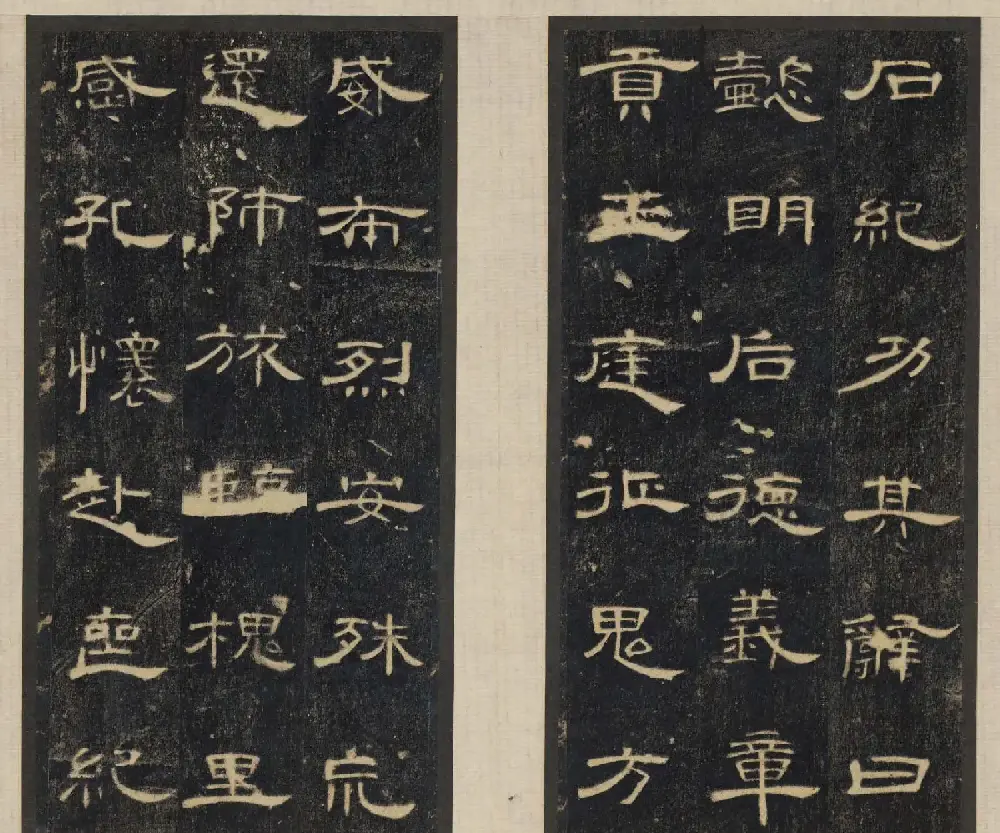 石紀功其辭曰
懿明后德義章
貢王庭征鬼方
威布烈安殊荒
還師旅臨槐里
感孔懷赴喪紀